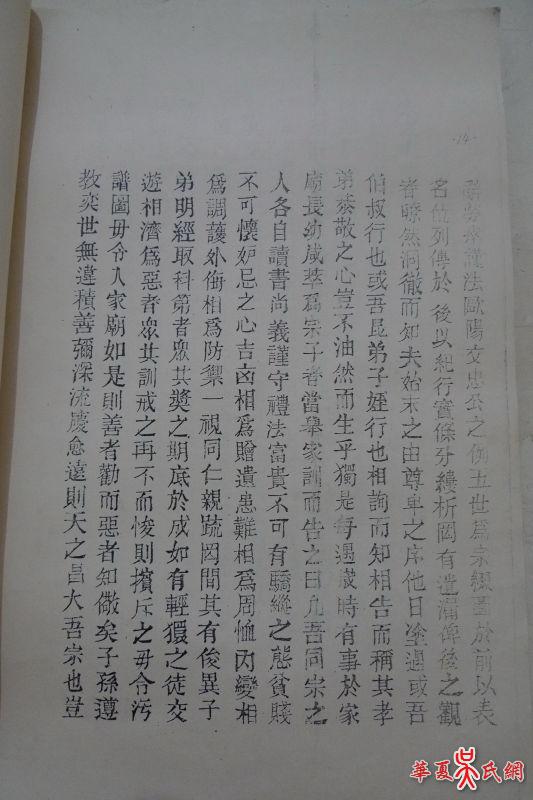 謹法歐陽文忠公之例五世爲宗綴圖於前以表
名位列傳於後以紀行實條分縷析罔有遺漏俾後之觀
者瞭然洞徹而知夫始末之由尊卑之序他日塗遇或吾
伯叔行也或吾昆弟子姪行也相詢而知相告而稱其孝
弟恭敬之心豈不油然而生乎獨是每遇歲時有事於家
廟長幼咸萃爲宗子者當舉家訓而告之曰凡吾同宗之
人各自讀書尚義謹守禮法富貴不可有驕縱之態貧賤
不可懷妒忌之心吉凶相爲贈遺患難相爲周恤內變相
爲調護外侮相爲防禦一視同仁親疏罔間其有俊異子
弟明經取科第者眾共獎之期底於成如有輕獧之徒交
遊相濟爲惡者眾共訓戒之再不而悛則擯斥之毋令污
譜圖毋令入家廟如是則善者勸而惡者知儆矣子孫遵
教奕世無違積善彌深流慶愈遠則天之昌大吾宗也豈
-14-
華夏吳氏網